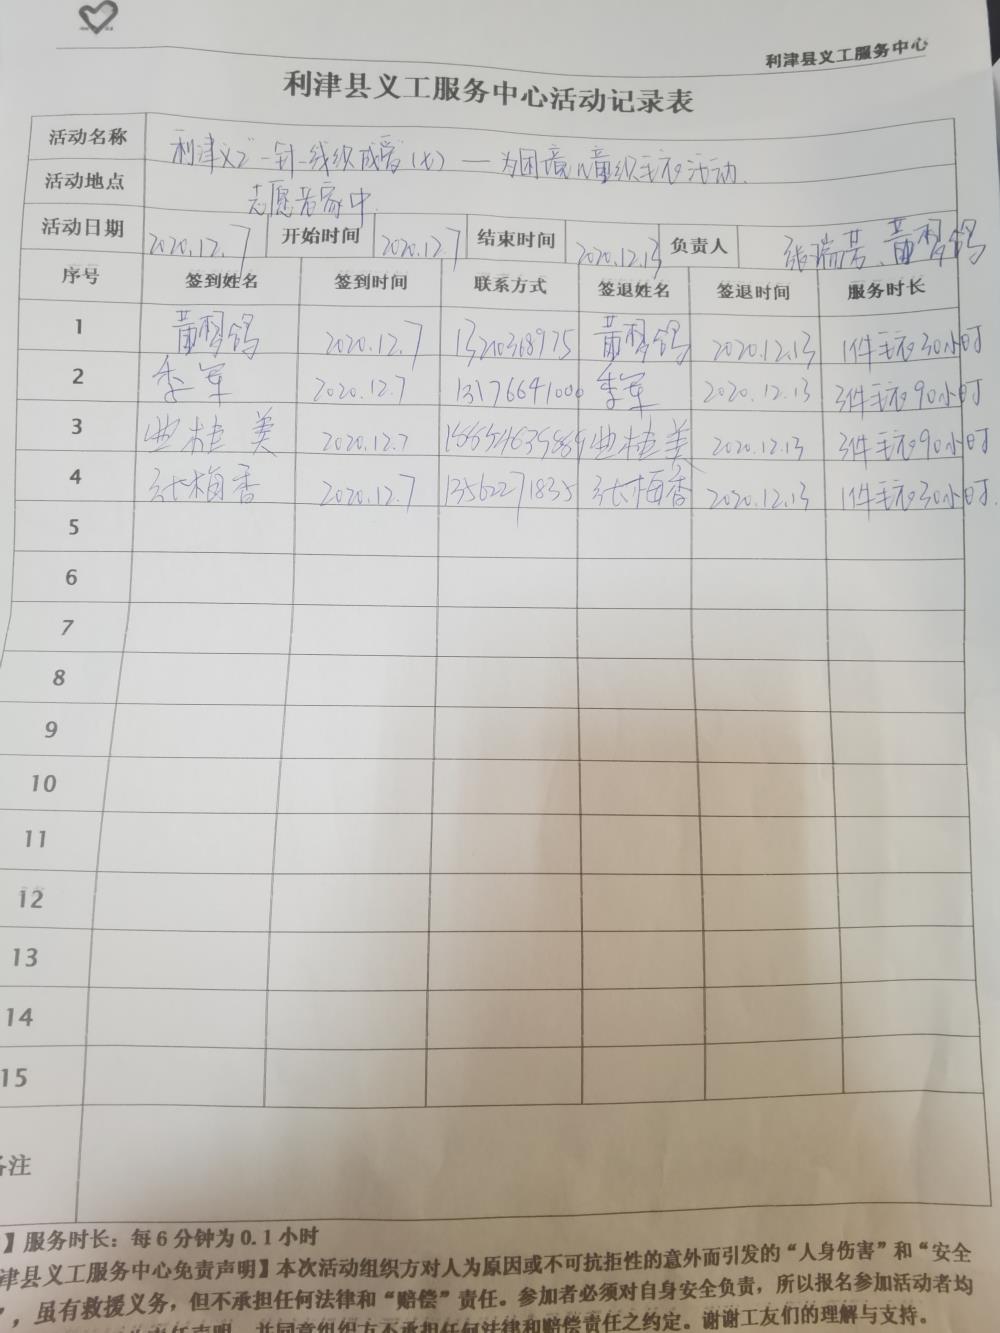 利津县义工服务中心
利津县义工服务中心活动记录表
活动名称 利津义工“一针一线织成爱”(七)——为困境儿童织毛衣活动.
活动地点 志愿者家中
活动日期 2020.12.7 开始时间 2020.12.7 结束时间 2020.12.13 负责人 张瑞芳、黄
序号 签到姓名 签到时间 联系方式 签退姓名 签退时间 服务时长
1 黄 2020.12.7 黄 2020.12.13 1件毛衣30小时
2 季军 2020.12.7 13176641000 季军 2020.12.13 3件毛衣90小时
3 曲桂美 2020.12.7 曲桂美 2020.12.13 3件毛衣90小时
4 张梅香 2020.12.7 13562271835 张梅香 2020.12.13 1件毛衣30小时.
5
6
7
8
9
10
11
12
13
14
15
备注
】服务时长：每6分钟为0.1小时
津县义工服务中心免责声明】本次活动组织方对人为原因或不可抗拒性的意外而引发的“人身伤害”和“安全
”，虽有救援义务，但不承担任何法律和“赔偿”责任。参加者必须对自身安全负责，所以报名参加活动者均
责任声明，并同意组织方不承担任何法律和赔偿责任之约定。谢谢工友们的理解与支持。